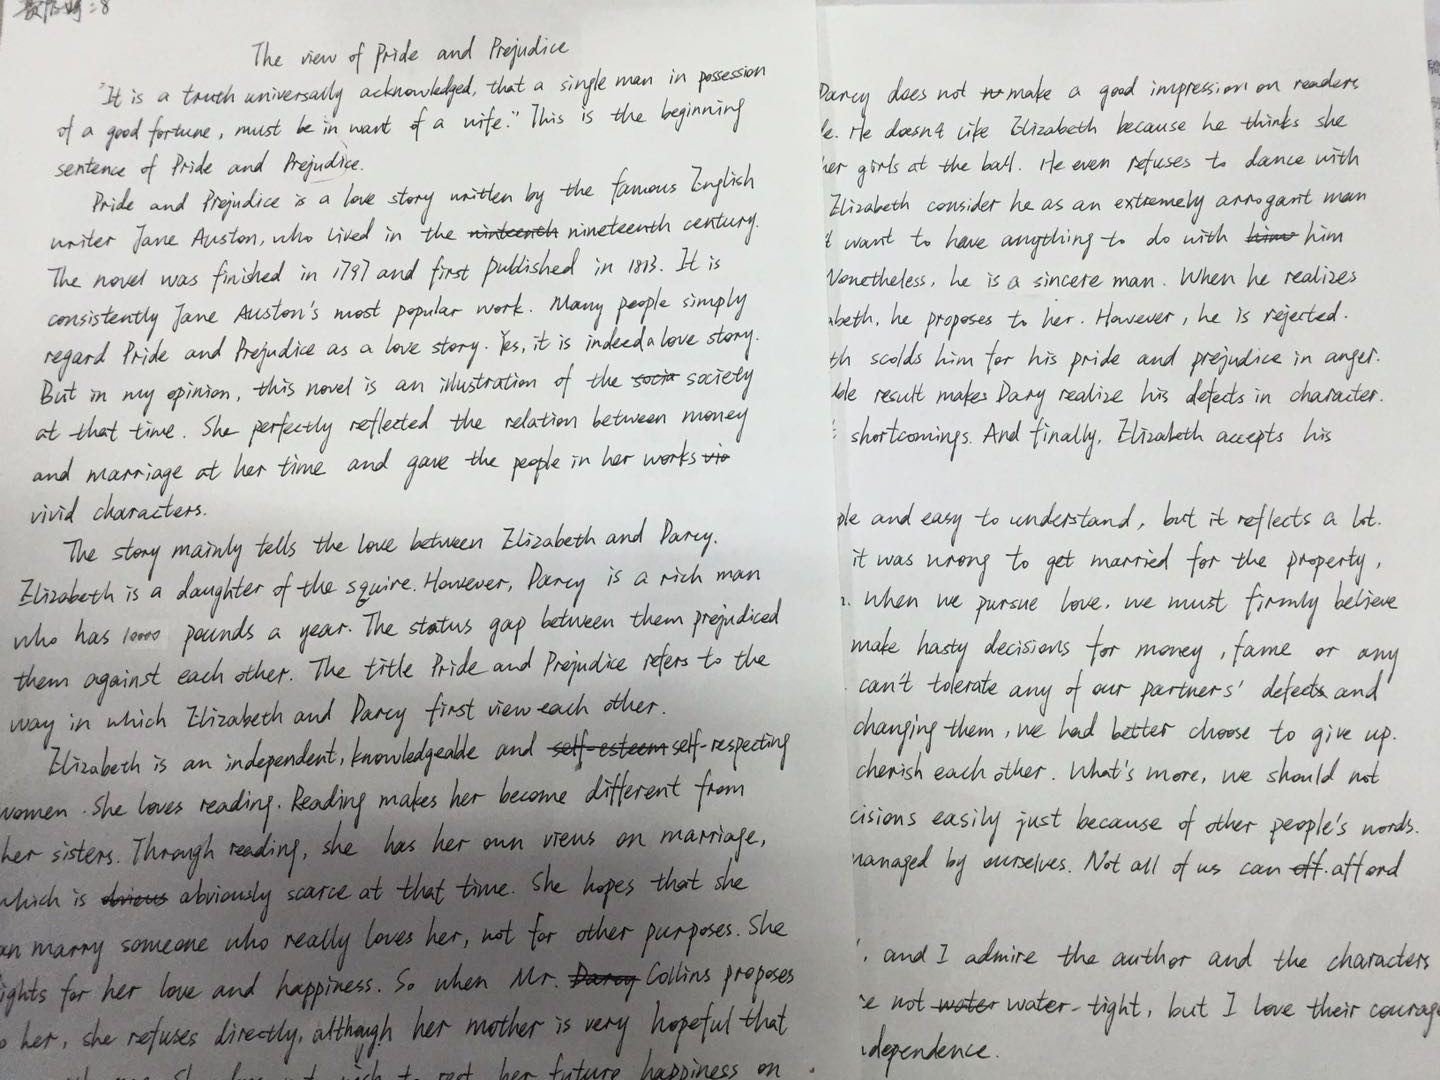 :8
The view of Pride and Prejudice
"It is a truth universally acknowledged, that a single man in possession
of a good fortune, must be in want of a wife." This is the beginning
sentence of Pride and Prejudice.
Pride and Prejudice is a love story written by the famous English
writer Jane Auston, who lived in the ninteenth nineteenth century.
The novel was finished in 1797 and first published in 1813. It is
consistently Jane Auston's most popular work. Many people simply
regard Pride and Prejudice as a love story. Yes, it is indeed a love story.
But in my opinion, this novel is an illustration of the socia society
at that time. She perfectly reflected the relation between money
and marriage at her time and gave the people in her works vio
vivid characters.
The story mainly tells the love between Elizabeth and Darcy.
Elizabeth is a daughter of the squire. However, Darcy is a rich man
who has 10000 pounds a year. The status gap between them prejudiced
them against each other. The title Pride and Prejudice refers to the
way in which Elizabeth and Darcy first view each other.
Elizabeth is an independent, knowledgeable and self-esteem self-respecting
women. She loves reading. Reading makes her become different from
her sisters. Through reading, she has her own views on marriage,
which is obvious obviously scarce at that time. She hopes that she
an marry someone who really loves her, not for other purposes. She
ights for her love and happiness. So when Mr. Darcy Collins proposes
o her, she refuses directly, although her mother is very hopeful that
her future happiness on
Darcy does not make a good impression on readers
le. He doesn't like Elizabeth because he thinks she
her girls at the ball. He even refuses to dance with
Elizabeth consider he as an extremely arrogant man
t want to have anything to do with him him
Nonetheless, he is a sincere man. When he realizes
abeth, he proposes to her. However, he is rejected.
th scolds him for his pride and prejudice in anger.
ble result makes Darcy realize his defects in character.
shortcomings. And finally, Elizabeth accepts his
ple and easy to understand, but it reflects a lot.
it was wrong to get married for the property,
. When we pursue love, we must firmly believe
make hasty decisions for money, fame or any
can't tolerate any of our partners' defects and
changing them, we had better choose to give up.
cherish each other. What's more, we should not
cisions easily just because of other people's words.
managed by ourselves. Not all of us can aff. afford
, and I admire the author and the characters
e not water water-tight, but I love their courage
dependence.